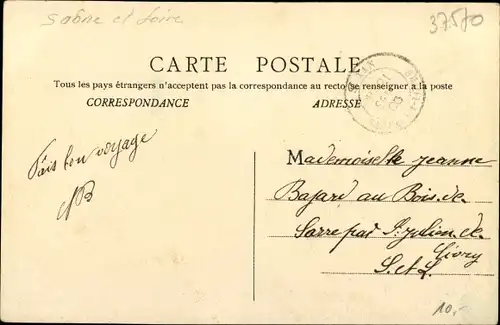 Saône et Loire
37510
CARTE POSTALE
Tous les pays étrangers n'acceptent pas la correspondance au recto (se renseigner à la poste
CORRESPONDANCE
ADRESSE
Fais bon voyage
Mademoiselle Jeanne
Bajard au Bois de
Sarre par St Julien de
Civry
S. et L.
10.-